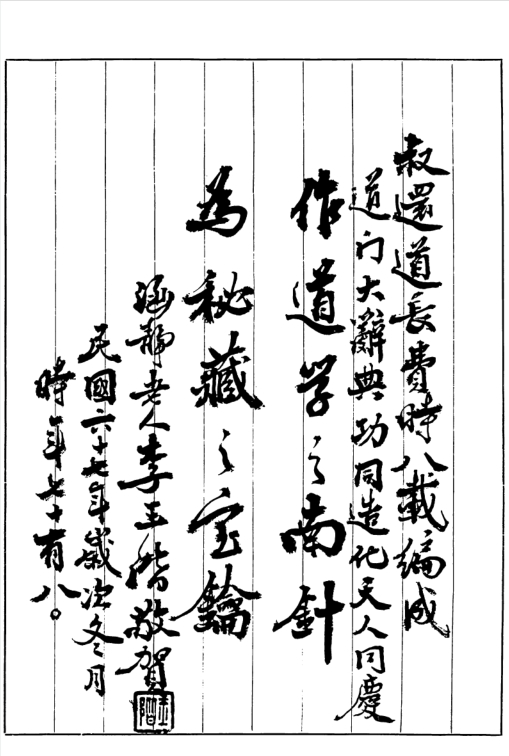 叔還道長費時八載編成
道门大辭典功同造化天人同慶
作道学之南針
為秘藏之宝鑰
涵静老人李玉階敬賀
民國六十七年歲次冬月
時年七十有八。
玉階